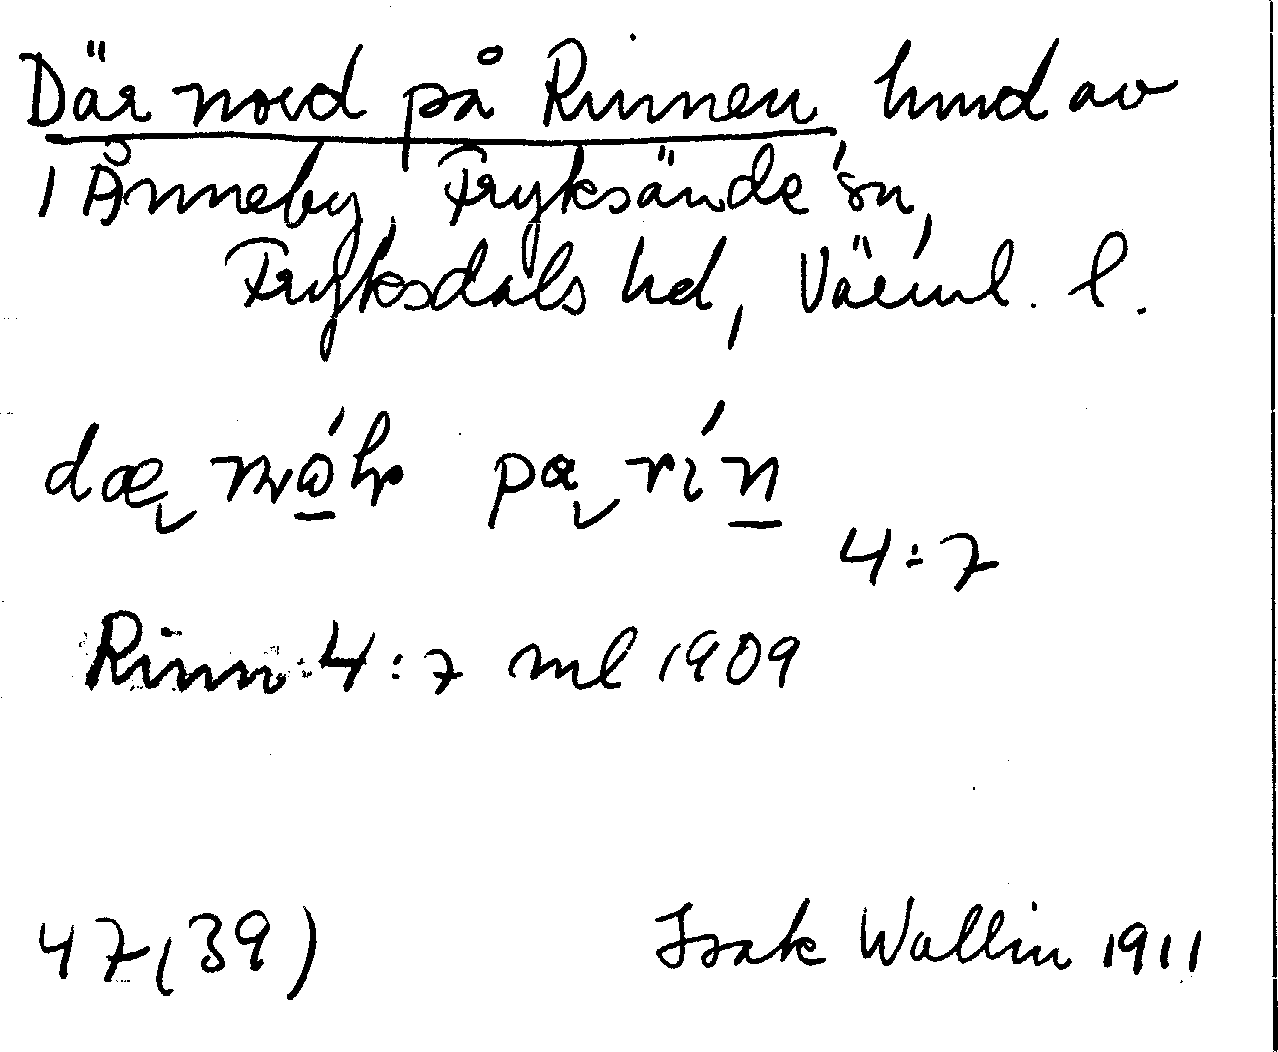 Där nord på Rinnen, hmd av
1 Ånneby, Fryksände sn,
Fryksdals hd, Värml. l.
4:7
Rinn 4:7 ml 1909
47(39)
Isak Wallin 1911